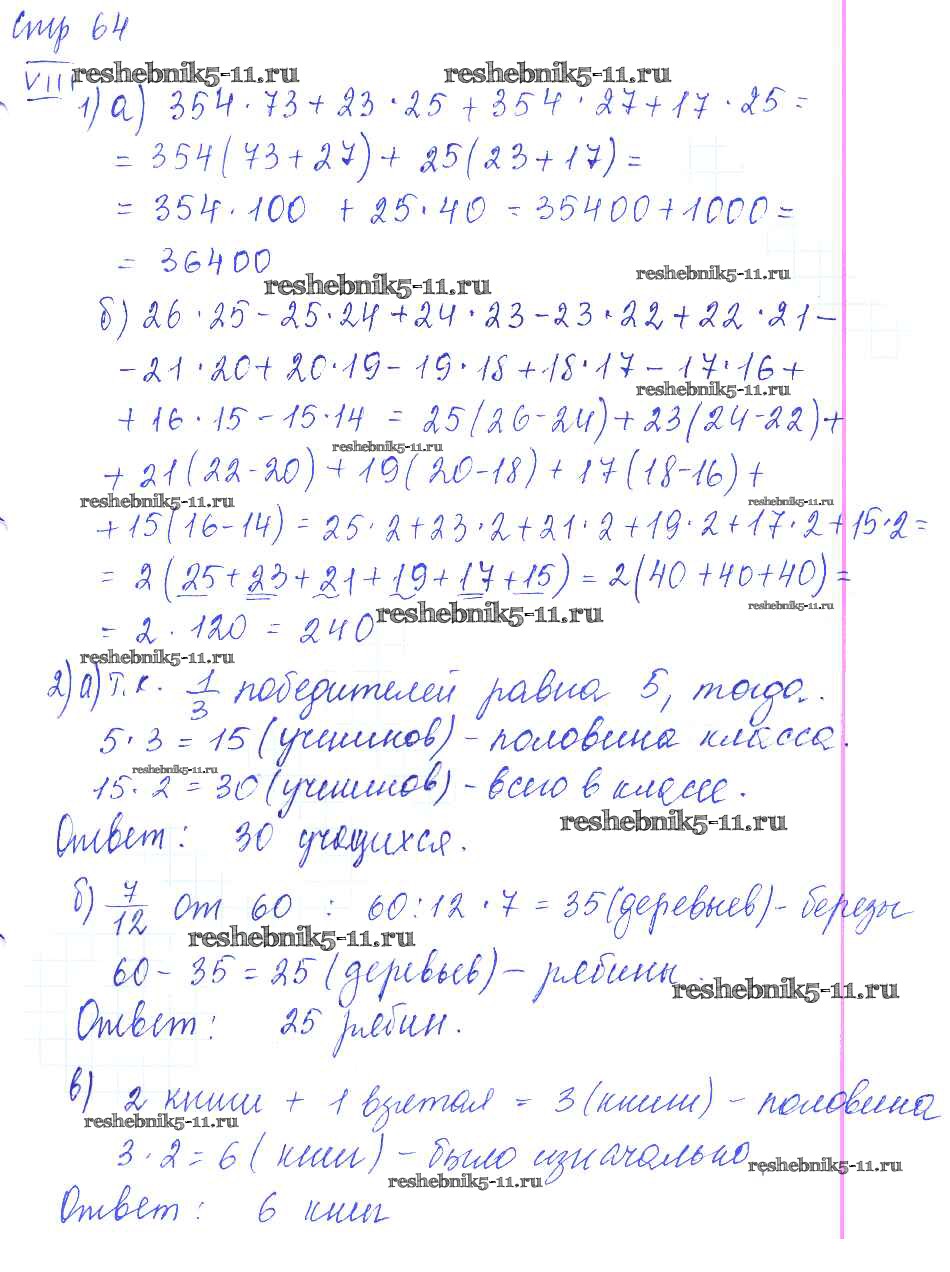 Стр 64
VIII reshebnik5-11.ru reshebnik5-11.ru
1) а) 354 · 73 + 23 · 25 + 354 · 27 + 17 · 25 =
= 354(73 + 27) + 25(23 + 17) =
= 354 · 100 + 25 · 40 = 35400 + 1000 =
= 36400
reshebnik5-11.ru reshebnik5-11.ru
б) 26 · 25 - 25 · 24 + 24 · 23 - 23 · 22 + 22 · 21 -
- 21 · 20 + 20 · 19 - 19 · 18 + 18 · 17 - 17 · 16 +
reshebnik5-11.ru
+ 16 · 15 - 15 · 14 = 25(26 - 24) + 23(24 - 22) +
reshebnik5-11.ru
+ 21(22 - 20) + 19(20 - 18) + 17(18 - 16) +
reshebnik5-11.ru reshebnik5-11.ru
+ 15(16 - 14) = 25 · 2 + 23 · 2 + 21 · 2 + 19 · 2 + 17 · 2 + 15 · 2 =
= 2(25 + 23 + 21 + 19 + 17 + 15) = 2(40 + 40 + 40) =
reshebnik5-11.ru reshebnik5-11.ru
= 2 · 120 = 240
reshebnik5-11.ru
2) а) Т.к. 1/3 победителей равна 5, тогда.
5 · 3 = 15 (учеников) - половина класса.
reshebnik5-11.ru
15 · 2 = 30 (учеников) - всего в классе.
reshebnik5-11.ru
Ответ: 30 учащихся.
б) 7/12 от 60 : 60 : 12 · 7 = 35 (деревьев) - березы
reshebnik5-11.ru
60 - 35 = 25 (деревьев) - рябины.
reshebnik5-11.ru
Ответ: 25 рябин.
в) 2 книги + 1 взятая = 3 (книги) - половина
reshebnik5-11.ru
3 · 2 = 6 (книг) - было изначально
reshebnik5-11.ru reshebnik5-11.ru
Ответ: 6 книг